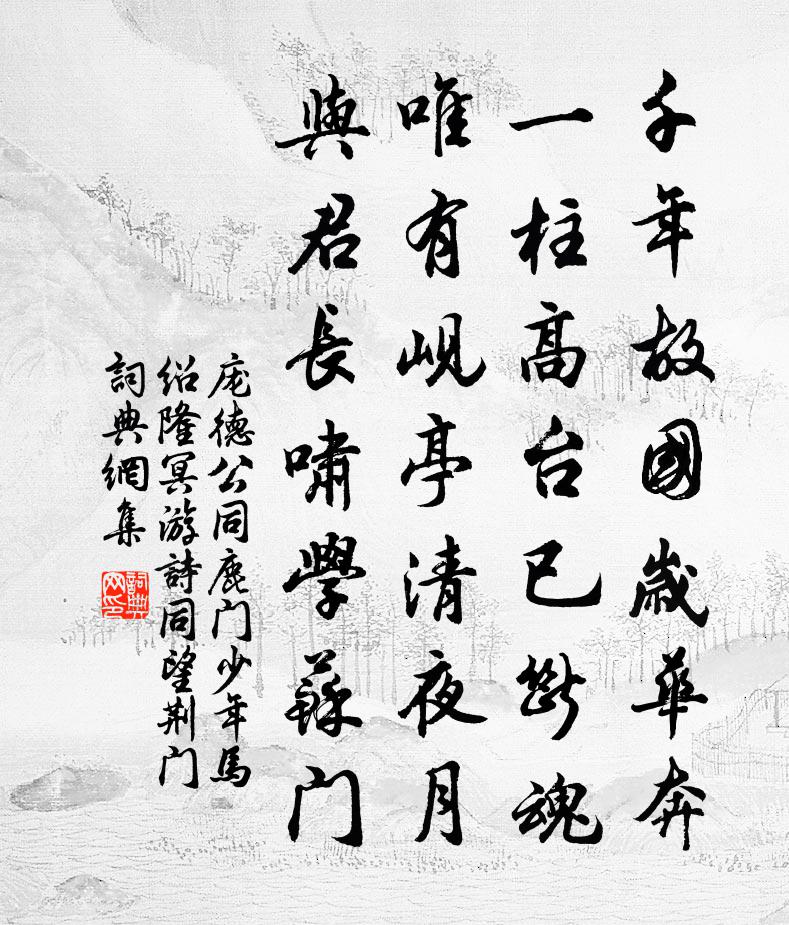 千年故國歲華奔
一柱高台已斷魂
唯有峴亭清夜月
與君長嘯學蘇門
庞德公同鹿门少年馬
紹隆冥游詩同望荆门
詞典網集
詞典网印